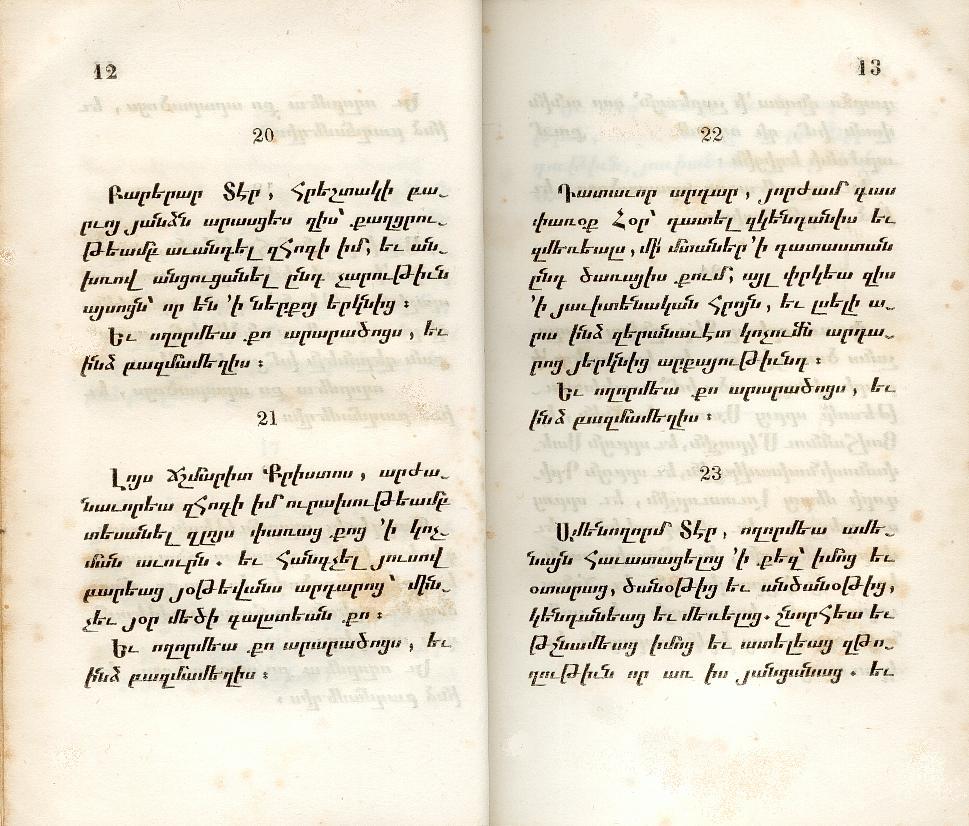 12
20
Բարերար Տէր, Հրեշտակի բա֊
րւոյ յանձն արասցես զիս՝ քաղցրու֊
թեամբ աւանդել զՀոգի իմ, եւ ան֊
խռով անցուցանել ընդ չարութիւն
այսոցն՝ որ են ՚ի ներքոյ երկնից :
Եւ ողորմեա քո արարածոցս, եւ
ինձ բազմամեղիս :
21
Լոյս Ճշմարիտ Քրիստոս, արժա֊
նաւորեա զՀոգի իմ ուրախութեամբ
տեսանել զլոյս փառաց քոց ՚ի կոչ֊
ման աւուրն. եւ Հանգչել յուսով
բարեաց յօթեվանս արդարոց՝ մին֊
չեւ յօր մեծի գալստեան քո :
Եւ ողորմեա քո արարածոցս, եւ
ինձ բազմամեղիս :
13
22
Դատաւոր արդար, յորժամ գաս
փառօք Հօր՝ դատել զկենդանիս եւ
զմեռեալս, մի մտաներ ՚ի դատաստան
ընդ ծառայիս քում, այլ փրկեա զիս
՚ի յաւիտենական Հրոյն, եւ լսելի ա֊
րա ինձ զերանաւէտ կոչումն արդա֊
րոց յերկնից արքայութիւնդ :
Եւ ողորմեա քո արարածոցս, եւ
ինձ բազմամեղիս :
23
Ամենողորմ Տէր, ողորմեա ամե֊
նայն Հաւատացելոց ՚ի քեզ՝ իմոց եւ
օտարաց, ծանօթից եւ անծանօթից,
կենդանեաց եւ մեռելոց. շնորՀեա եւ
թշնամեաց իմոց եւ ատելեաց զթո֊
ղութիւն որ առ իս յանցանաց. եւ